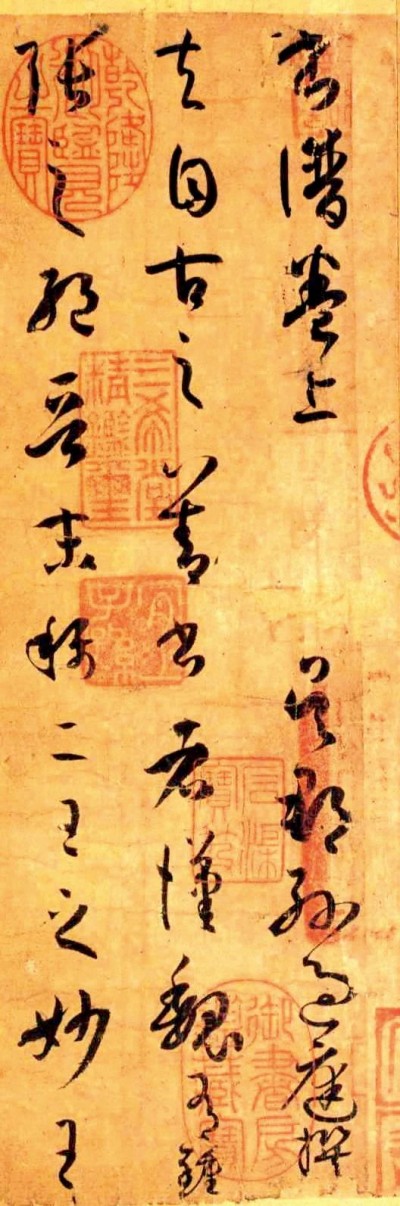 書譜卷上 吳郡孫過庭撰
夫自古之善書者漢魏有鍾
張之絕晉末稱二王之妙王
乾隆御覽之寶
三希堂精鑑璽
宜子孫
石渠寶笈
御書房鑑藏寶